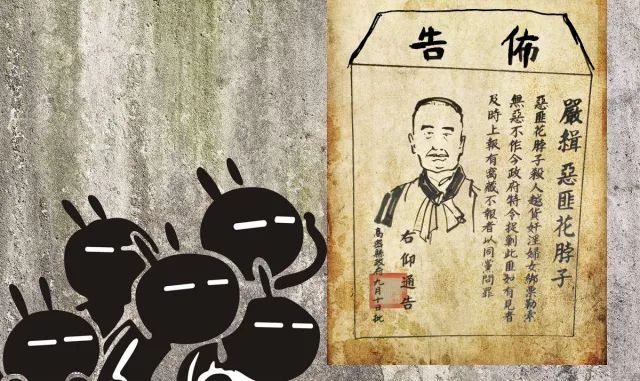 佈告
嚴緝惡匪花脖子
惡匪花脖子殺人越貨奸淫婦女綁票勒索
無惡不作今政府特令捉剿此匪如有見者
及時上報有窩藏不報者以同黨問罪
右仰通告
高密縣政府九月十日批